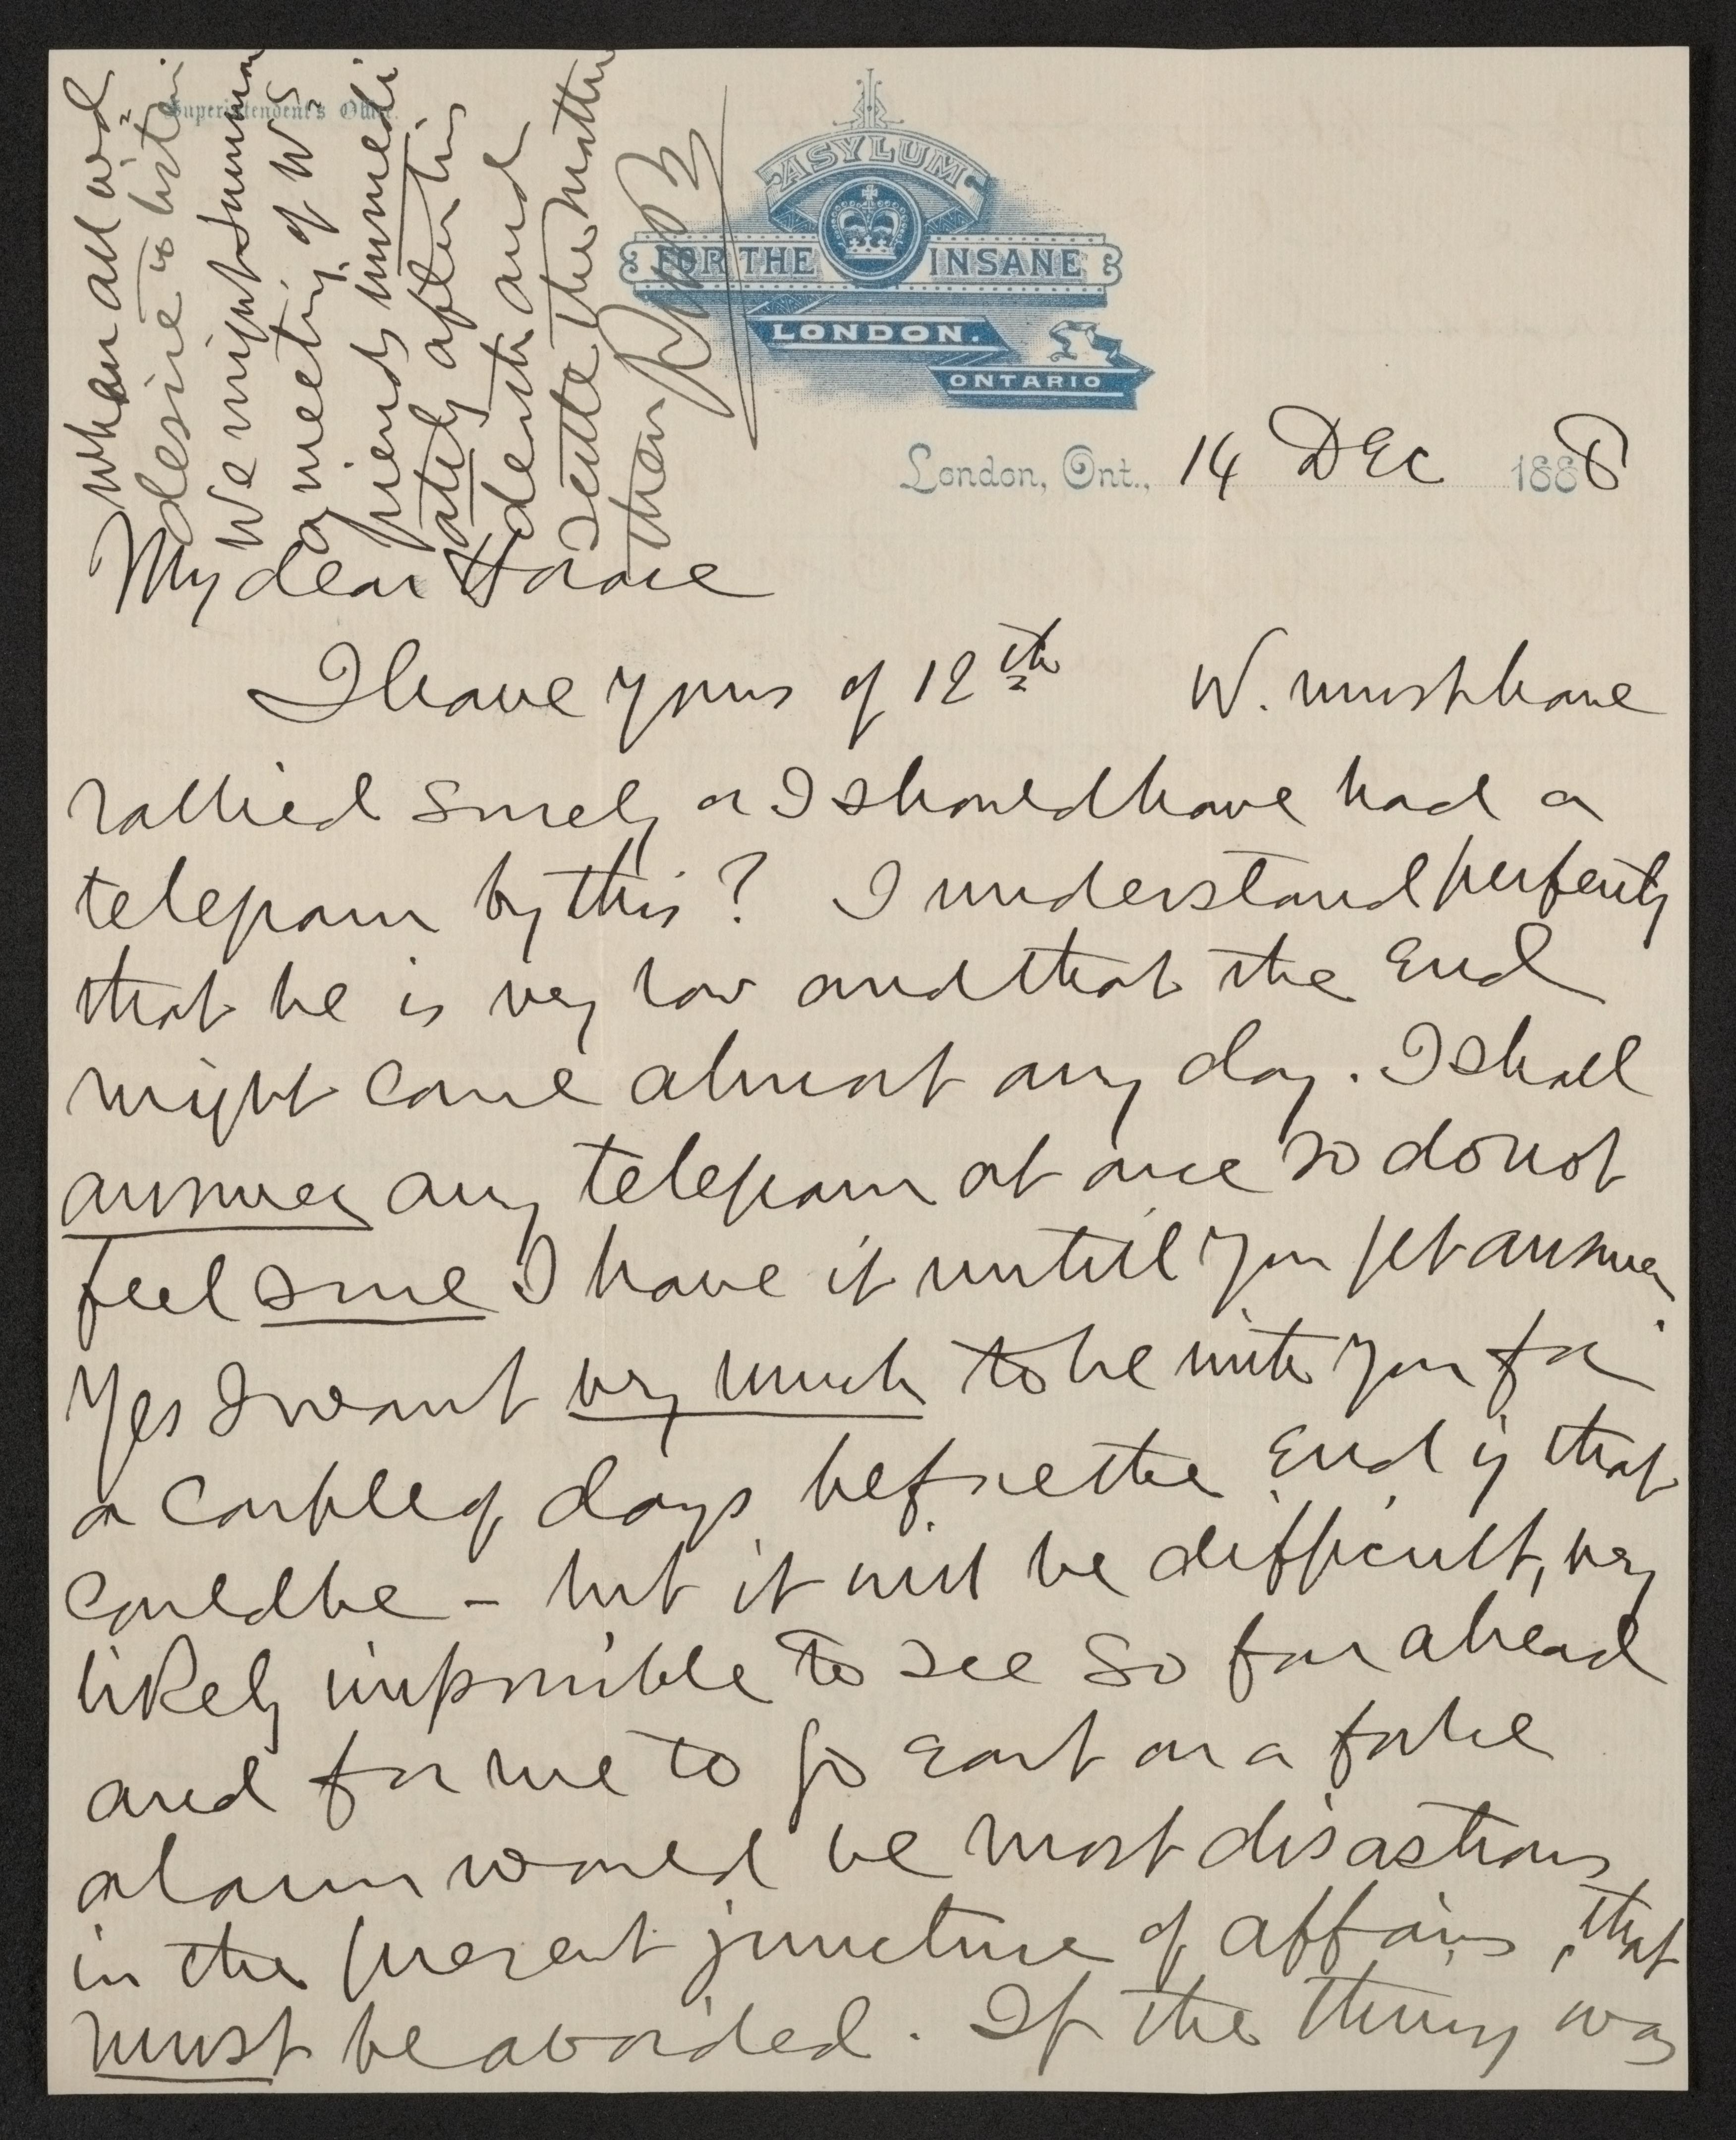 Superintendent's Office.
ASYLUM
FOR THE INSANE
LONDON.
ONTARIO
London, Ont., 14 DEC 1888
My dear Horace
I have yours of 12th W. must have
rallied surely or I should have had a
telegram by this? I understand perfectly
that he is very low and that the end
might come almost any day. I shall
answer any telegram at once so do not
feel sure I have it until you get answer.
Yes I want very much to be with you for
a couple of days before the end if that
could be - but it will be difficult, very
likely impossible to see so far ahead
and for me to go East on a false
alarm would be most disastrous
in the present juncture of affairs, that
must be avoided. If the thing was
when all wd
desire to listen
We might summon
a meeting of W's
friends immedi
ately after his
death and
settle the matter
then RMB